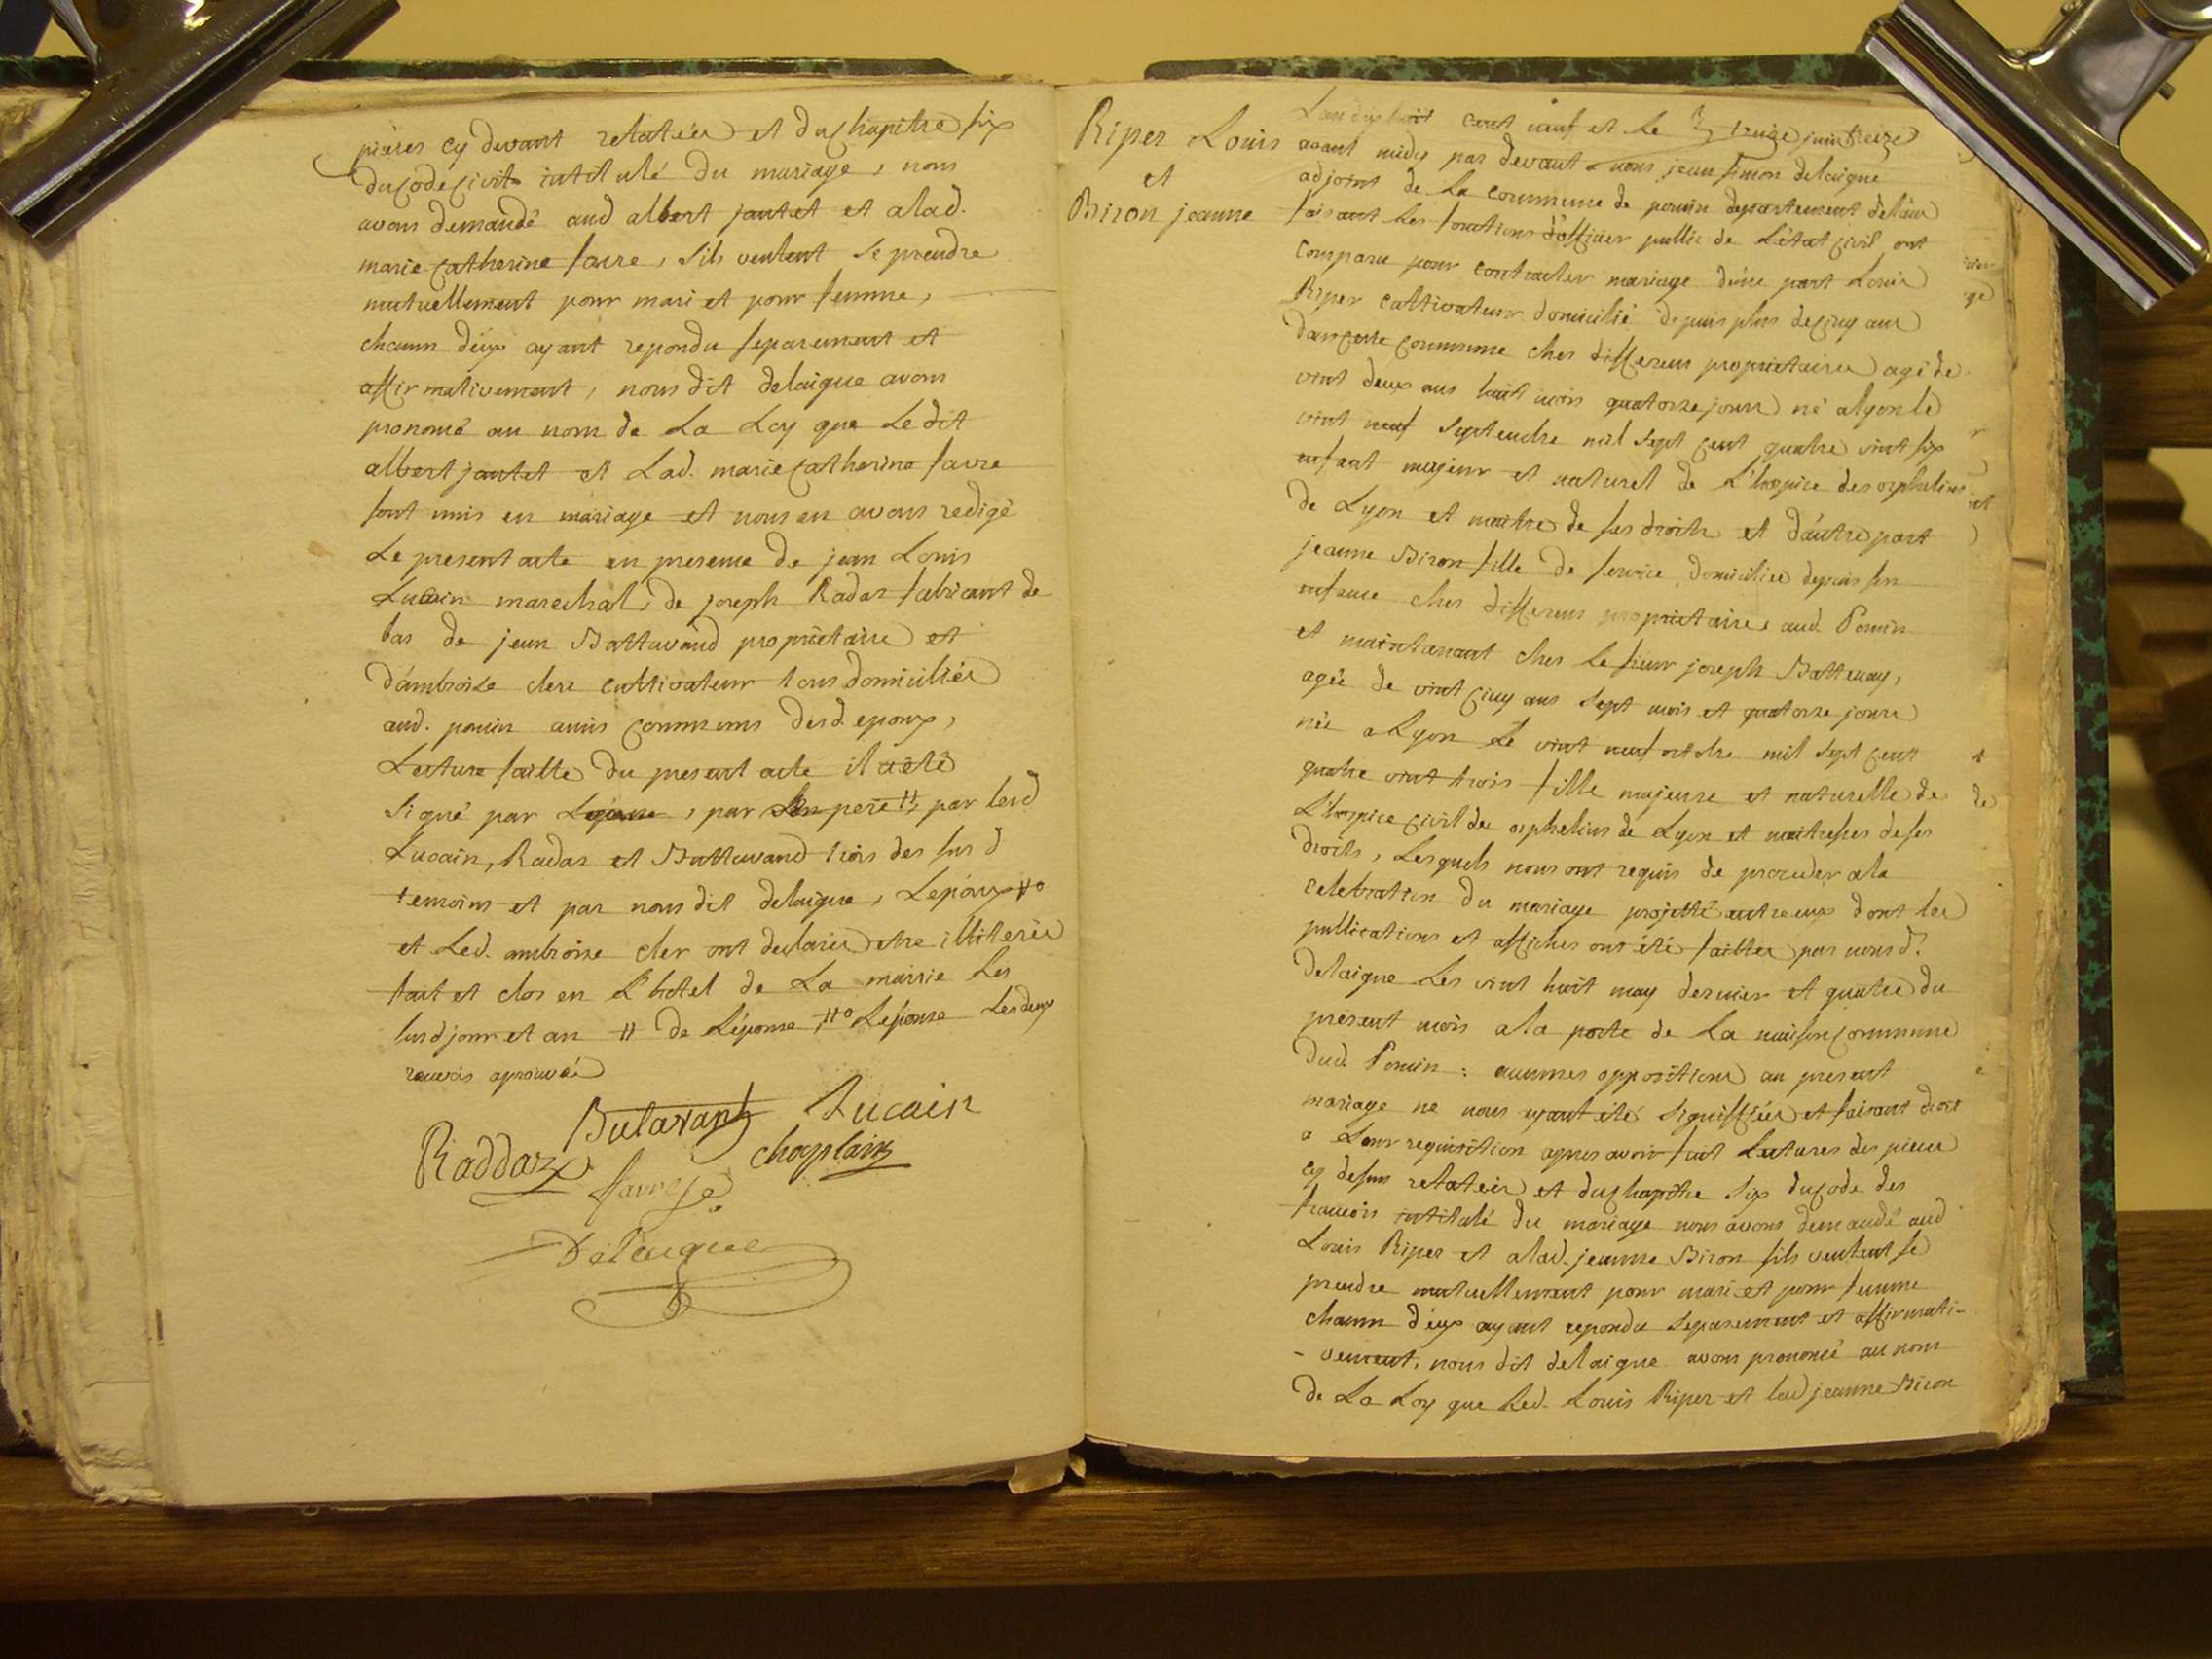 pièces cy devant relatées et du chapitre six
du code civil intitulé du mariage, nous
avons demandé aud albert jantet et a lad.
marie catherine favre, sils veulent se prendre
mutuellement pour mari et pour femme,
chacun d'éux ayant repondu separement et
affirmativement, nous dit delaigue avons
prononcé au nom de La Loy que Le dit
albert jantet et Lad. marie catherine favre
sont unis en mariage et nous en avons redigé
Le present acte en presence de jean Louis
Lucain marechal, de joseph Radaz fabricant de
bas de jean Battavand propriétaire et
d'ambroise clerc cultivateur tous domiciliés
aud. pouin amis communs desd. epoux,
Lecture faitte du present acte il a été
signé par par pere # par lesd
Lucain, Radaz et Battavand trois des susd
temoins et par nous dit delaigue, L'epoux #o
et Led. ambroise cler ont declarés etre illiterés
fait et clos en L'hotel de La mairie Les
susd jour et an # de L'épouse, #o L'épouse Les deux
renvois aprouvés
Batavant Lucain
Raddaz chaplain
favre
Delaigue
Riper Louis
et
Biron jeanne
L'an dix huit cent neuf et le treize juin
avant midy par devant nous jean simon delaigue
adjoint de La commune de pouin departement de l'ain
faisant Les fonctions d'officier public de L'état civil, ont
comparu pour contracter mariage d'une part Louis
Riper cultivateur domicilié depuis plus de cinq ans
dans cette commune ches differens proprietaires agé de
vint deux ans huit mois quatorze jours né a lyon le
vint neuf septembre mil sept cent quatre vint six
enfant majeur et naturel de L'hospice des orphelins
de Lyon et maitre de ses droits et d'autre part
jeanne Biron fille de service, domiciliée depuis son
enfance ches differens proprietaires aud. Pouin
et maintenant ches Le sieur joseph Battuay,
agée de vint cinq ans sept mois et quatorze jours
née a Lyon Le vint neuf octobre mil sept cent
quatre vint trois fille majeure et naturelle de
L'hospice civil des orphelins de Lyon et maitresses de ses
droits, Lesquels nous ont requis de proceder a la
celebration du mariage projetté entre eux dont les
publications et affiches ont été faittes par nous d.
delaigue Les vint huit may dernier et quatre du
présent mois a la porte de La maison commune
dud. Pouin : aucunes oppositions au present
mariage ne nous ayant eté signiffiées et faisant droit
a Leur requisition apres avoir fait Lectures des pieces
cy dessus relatées et du chapitre six du code des
francois intitulé du mariage nous avons demandé aud
Louis Riper et a lad. jeanne Biron sils veulent se
prendre mutuellement pour mari et pour femme
chacun d'eux ayant repondu separement et affirmati-
- vement, nous dit delaigue avons prononcé au nom
de La Loy que Led. Louis Riper et lad jeanne Biron